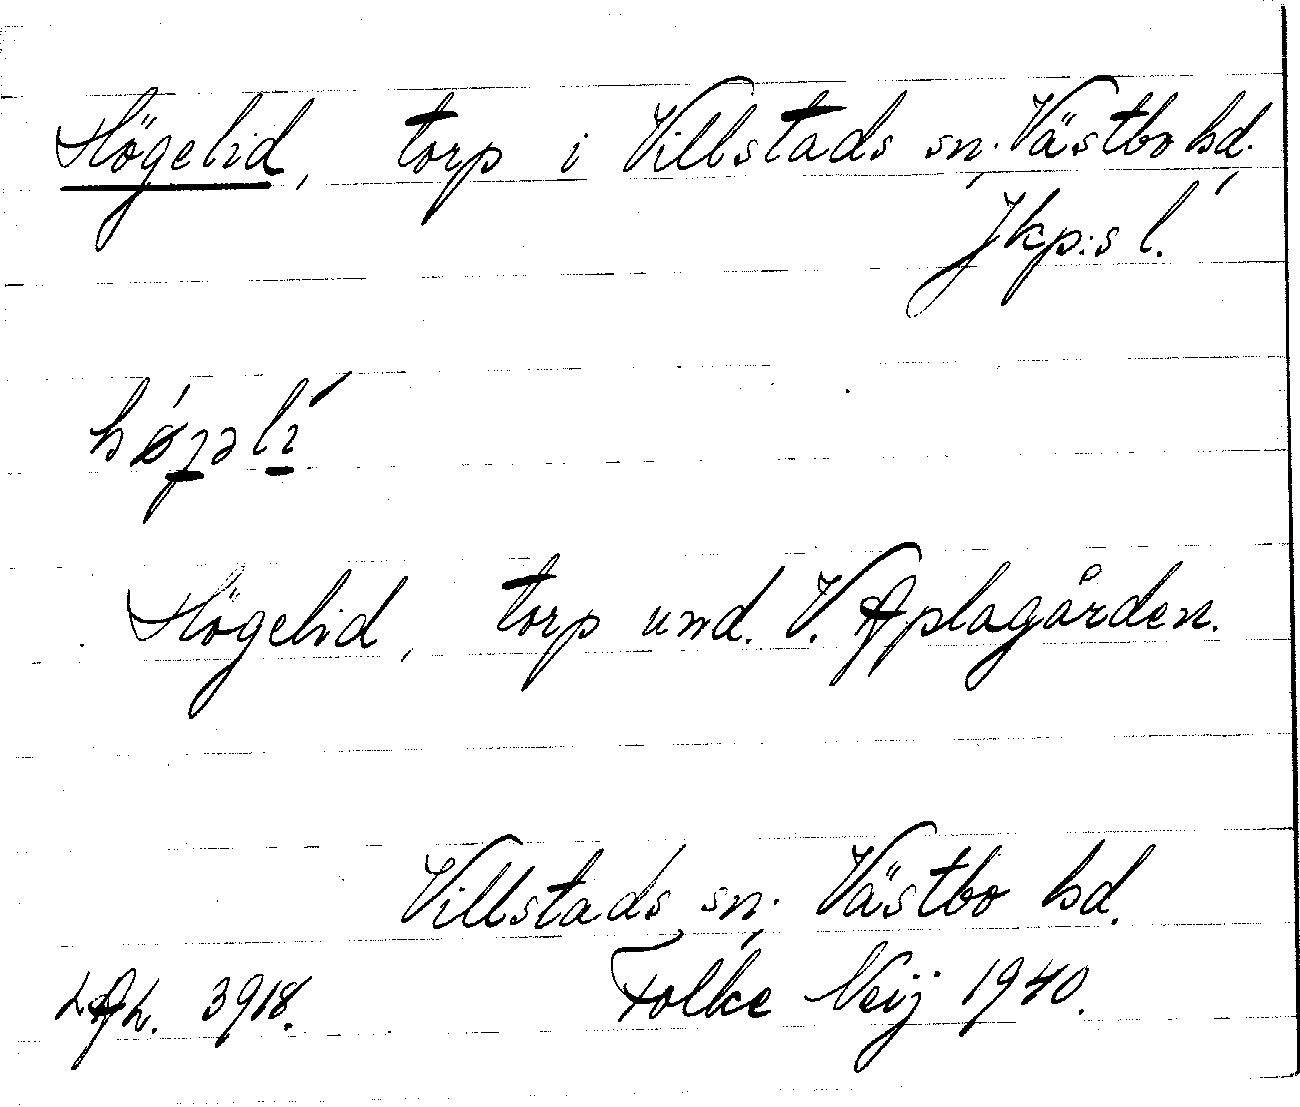 Högelid, torp i Villstads sn, Västbo hd,
Jkp:s l.
hǿȷəlí
Högelid, torp und. V. Aplagården.
Villstads sn, Västbo hd.
LAL. 3918. Folke Neij 1940.